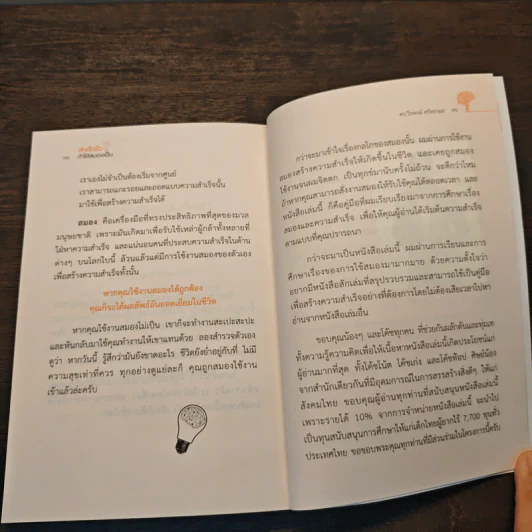 เราเองไม่จำเป็นต้องเริ่มจากศูนย์
เราสามารถแกะรอยและถอดแบบความสำเร็จนั้น
มาใช้เพื่อสร้างความสำเร็จได้
สมอง คือเครื่องมือที่ทรงประสิทธิภาพที่สุดของมวล
มนุษยชาติ เพราะมันเกิดมาเพื่อรับใช้เหล่าผู้กล้าทั้งหลายที่
ใฝ่หาความสำเร็จ และแน่นอนคนที่ประสบความสำเร็จในด้าน
ต่างๆ บนโลกใบนี้ ล้วนแล้วแต่มีการใช้งานสมองของตัวเอง
เพื่อสร้างความสำเร็จทั้งนั้น
หากคุณใช้งานสมองได้ถูกต้อง
คุณก็จะได้ผลลัพธ์อันยอดเยี่ยมในชีวิต
หากคุณใช้งานสมองไม่เป็น เขาก็จะทำงานสะเปะสะปะ
และหันกลับมาใช้คุณทำงานให้เขาแทนด้วย ลองสำรวจตัวเอง
ดูว่า หากวันนี้ รู้สึกว่ามันยังขาดอะไร ชีวิตยังย่ำอยู่กับที่ ไม่มี
ความสุขเท่าที่ควร ทุกอย่างดูแย่ละก็ คุณถูกสมองใช้งาน
เข้าแล้วล่ะครับ
กว่าจะมาเข้าใจเรื่องกลไกของสมองนั้น ผมผ่านการใช้งาน
สมองสร้างความสำเร็จให้เกิดขึ้นในชีวิต และเคยถูกสมอง
ใช้งานจนผมจิตตก เป็นทุกข์มานับครั้งไม่ถ้วน จะดีกว่าไหม
ถ้าหากคุณสามารถสั่งงานสมองให้รับใช้คุณได้ตลอดเวลา และ
หนังสือเล่มนี้ ก็คือคู่มือที่ผมเรียบเรียงมาจากการศึกษาเรื่อง
สมองและความสำเร็จ เพื่อให้คุณผู้อ่านได้เริ่มต้นความสำเร็จ
ตามแบบที่คุณปรารถนา
กว่าจะมาเป็นหนังสือเล่มนี้ ผมผ่านการเรียนและการ
ศึกษาเรื่องของการใช้สมองมามากมาย ด้วยความตั้งใจว่า
อยากมีหนังสือสักเล่มที่สรุปรวบรวมและสามารถใช้เป็นคู่มือ
เพื่อสร้างความสำเร็จอย่างที่ต้องการโดยไม่ต้องเสียเวลาไปหา
อ่านจากหนังสือเล่มอื่น
ขอบคุณน้องๆ และโค้ชทุกคน ที่ช่วยกันผลักดันและทุ่มเท
ทั้งความรู้ความคิดเพื่อให้เนื้อหาหนังสือเล่มนี้เกิดประโยชน์แก่
ผู้อ่านมากที่สุด ทั้งโค้ชโน้ต โค้ชเก่ง และโค้ชท๊อป ศิษย์น้อง
จากสำนักเดียวกันที่มีอุดมการณ์ในการสรรสร้างสิ่งดีๆ ให้แก่
สังคมไทย ขอบคุณผู้อ่านทุกท่านที่สนับสนุนหนังสือเล่มนี้
เพราะรายได้ 10% จากการจำหน่ายหนังสือเล่มนี้ จะนำไป
เป็นทุนสนับสนุนการศึกษาให้แก่เด็กไทยผู้ยากไร้ 7,700 ทุนทั่ว
ประเทศไทย ขอขอบพระคุณทุกท่านที่มีส่วนร่วมในโครงการนี้ครับ